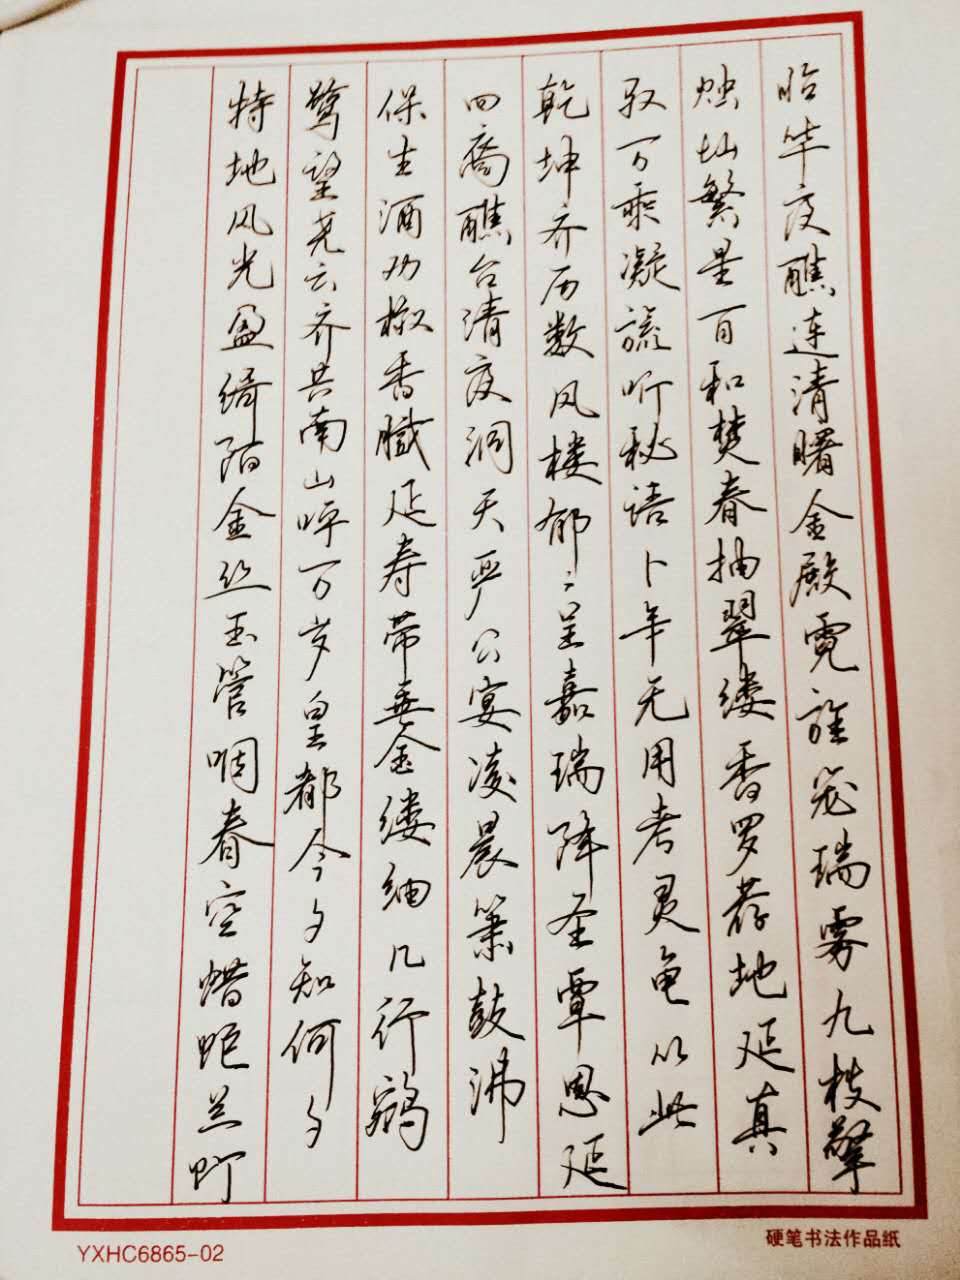 昭华夜醮连清曙金殿霓旌笼瑞雾九枝擎
烛灿繁星百和焚春抽翠缕香罗荐地延真
驭万乘凝旒听秘语卜年无用考灵龟以此
乾坤齐历数凤楼郁〻呈嘉瑞降圣覃恩延
四裔醮台清夜洞天严公宴凌晨箫鼓沸
保生酒劝椒香腻延寿带垂金缕细几行鹓
鹭望尧云齐共南山呼万岁皇都今夕知何夕
特地风光盈绮陌金丝玉管咽春空蜡炬兰灯
YXHC6865-02
硬笔书法作品纸